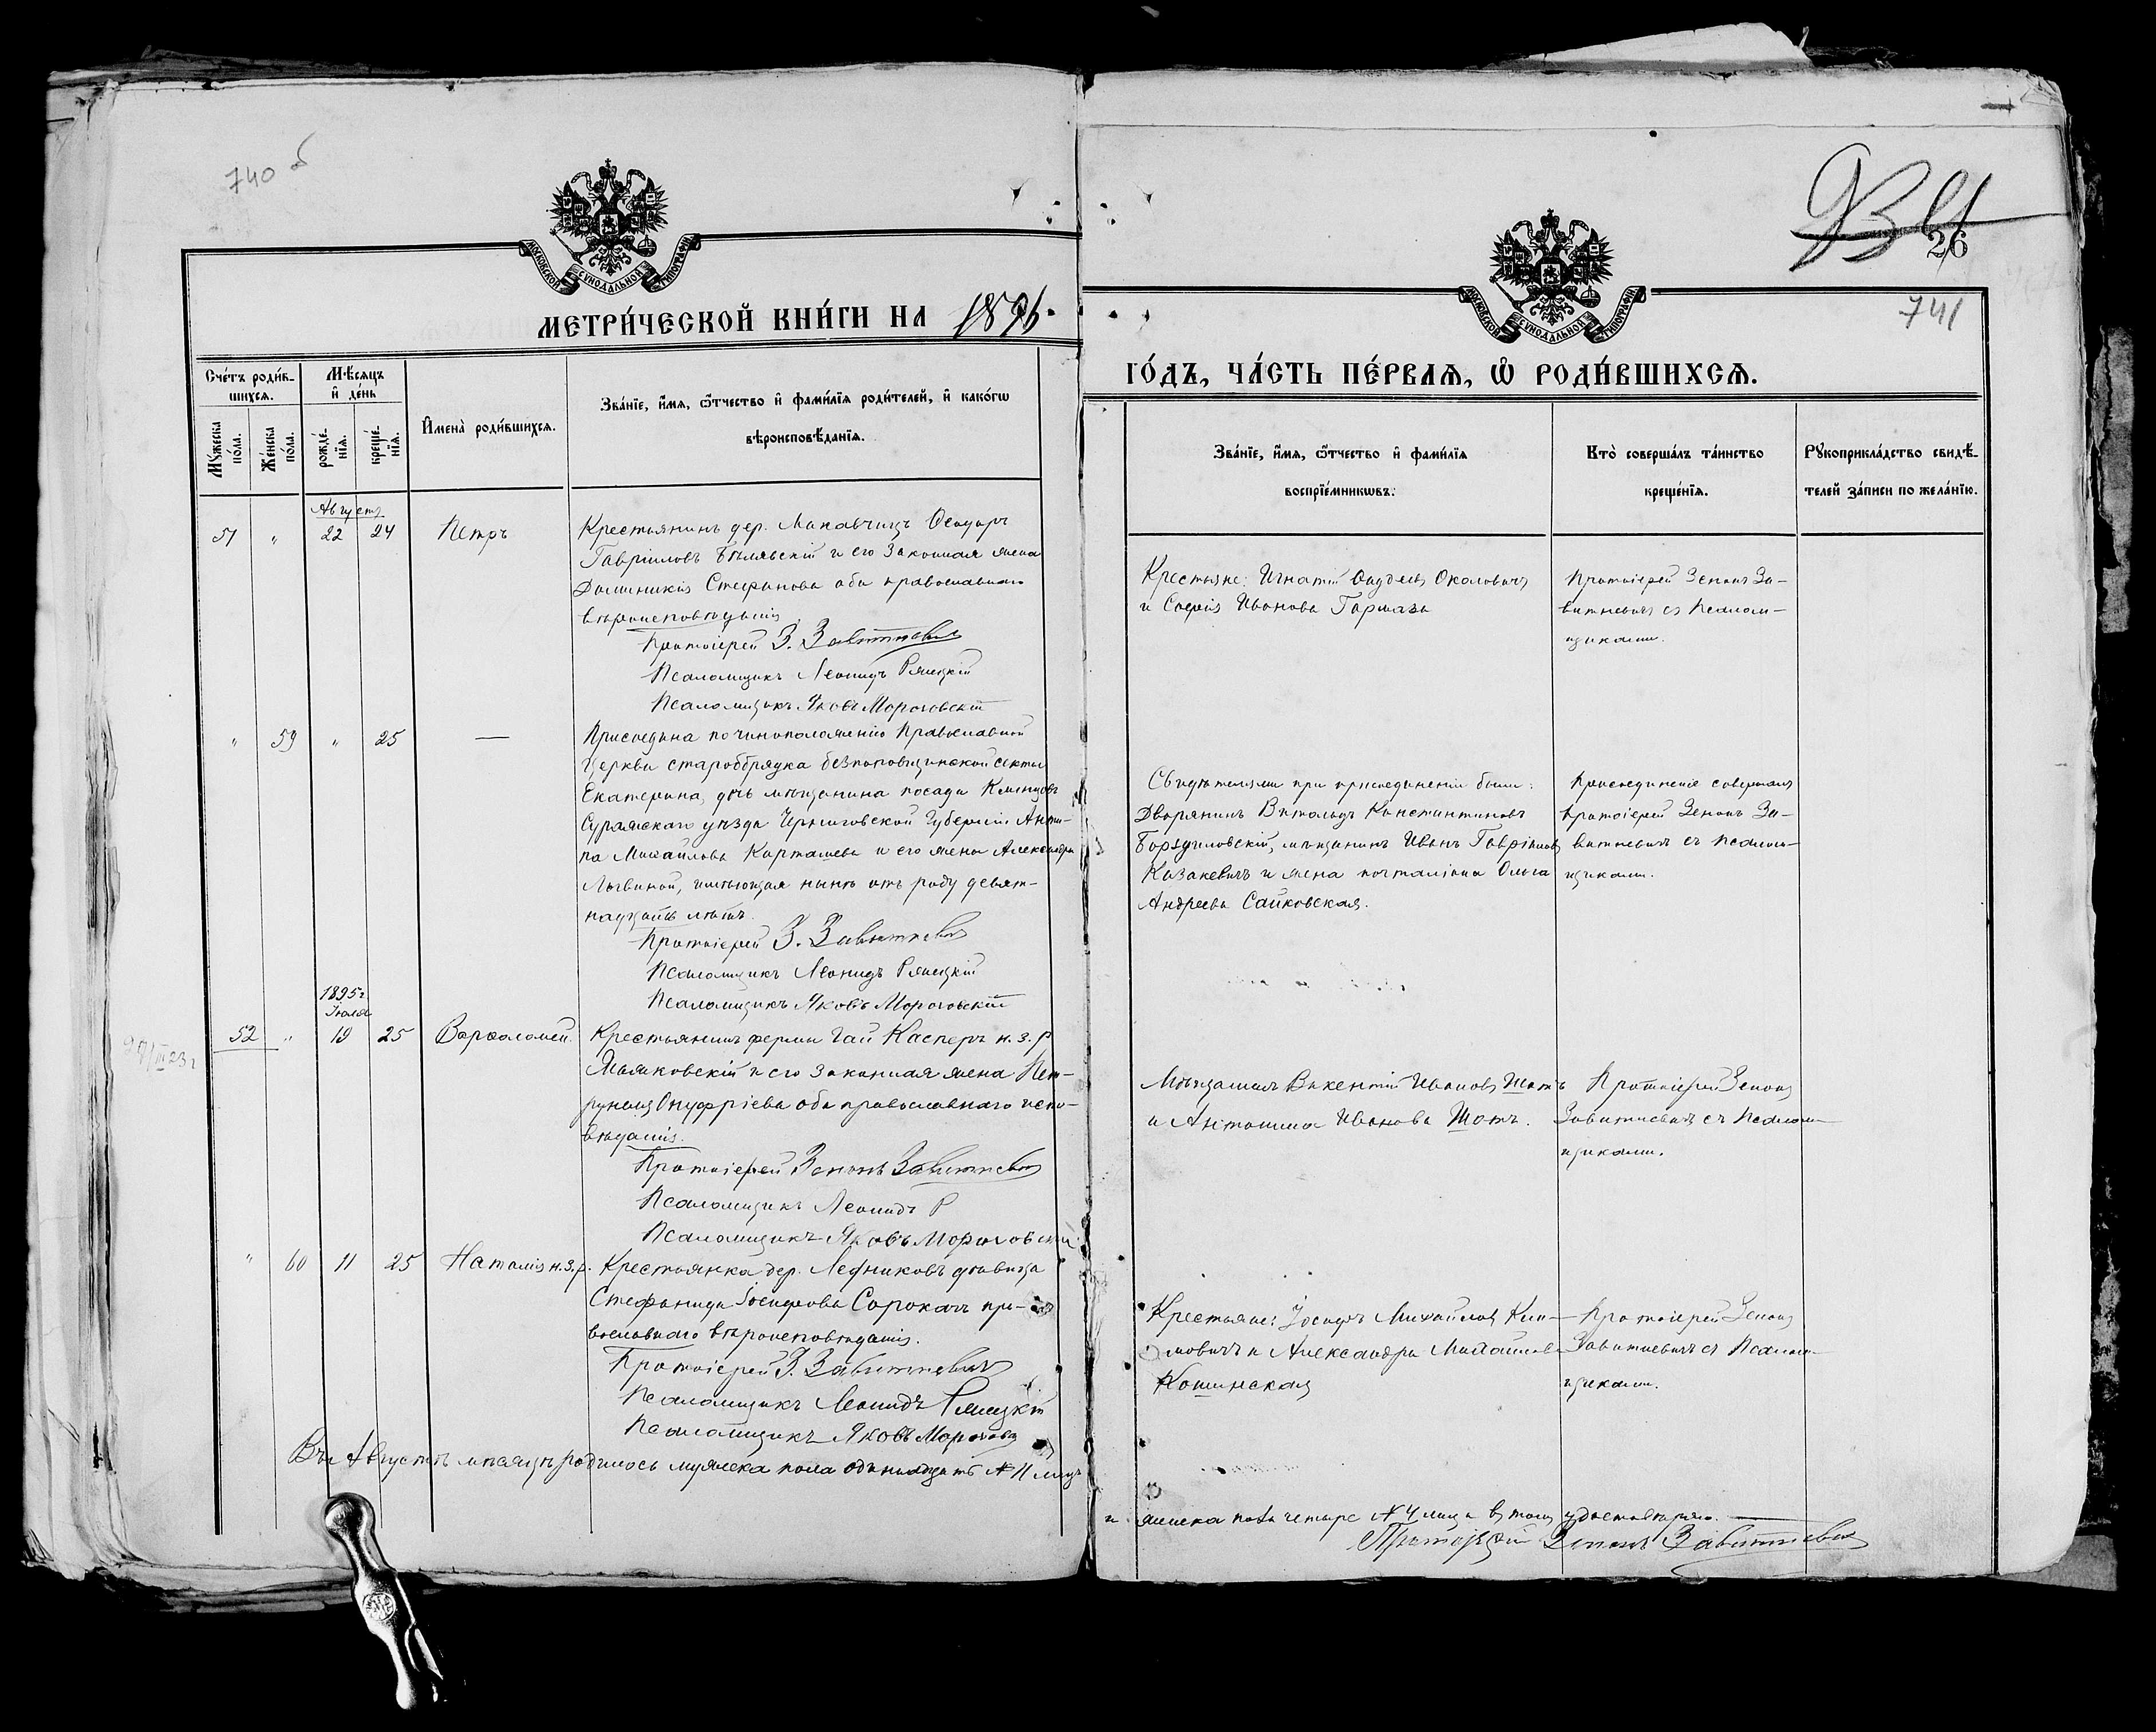 740 б
МОСКОВСКОЙ СѴНОДАЛЬНОЙ ТИПОГРАФІИ
МЕТРИ́ЧЕСКОЙ КНИ́ГИ НА 1896.
Сче́тъ роди́в-
шихсѧ.
Мѣ́сѧцъ
и҆ де́нь
Му́жеска
по́ла.
Же́нска
по́ла.
рожде́-
нїѧ.
креще́-
нїѧ.
И҆мена̀ роди́вшихсѧ.
Зва́нїе, и҆́мѧ, ѻ҆́тчество и҆ фами́лїѧ роди́телей, и҆ како́гѡ
вѣроисповѣ́данїѧ.
Августъ
51 " 22 24 Петръ
Крестьянинъ дер.
Гавріиловъ Бѣлявскій и его законная жена
Доминикія Стефанова оба православнаго
вѣроисповѣданія.
Протоіерей З. Завитневичъ
Псаломщикъ Леонидъ
Псаломщикъ Яковъ Мороговскій
" 59 " 25 —
Присоедина по чиноположенію Православной
Церкви старообрядка безпоповщинской секты
Екатерина, дочь мѣщанина посада Клинцовъ
Суражскаго уѣзда Черниговской Губерніи Анти-
па Михайлова Карташева и его жены Александры
имѣющая нынѣ отъ роду девят-
надцать лѣтъ.
Протоіерей З. Завитневичъ
Псаломщикъ Леонидъ
Псаломщикъ Яковъ Мороговскій
1895 г.
Іюля
52 " 19 25 Варѳоломей.
Крестьянинъ фермы Гай Касперъ н. з. р.
и его законная жена Пет-
рунеля Онуфріева оба православнаго испо-
вѣданія.
Протоіерей Зенонъ Завитневичъ
Псаломщикъ Леонидъ Р
Псаломщикъ Яковъ Мороговскій
" 60 11 25 Наталія н. з. р.
Крестьянка дер. Ледниковъ дѣвица
Стефанида Іосифова Сорокачъ пра-
вославнаго вѣроисповѣданія.
Протоіерей З. Завитневичъ
Псаломщикъ Леонидъ
Псаломщикъ Яковъ Мороговскій
Въ Августѣ мѣсяцѣ родилось мужеска пола одинадцать № 11 лицъ
26
741
МОСКОВСКОЙ СѴНОДАЛЬНОЙ ТИПОГРАФІИ
ГО́ДЪ, ЧА́СТЬ ПЕ́РВАѦ, Ѡ҆ РОДИ́ВШИХСѦ.
Зва́нїе, и҆́мѧ, ѻ҆́тчество и҆ фами́лїѧ
воспрїе́мникѡвъ.
Кто̀ соверша́лъ та́инство
креще́нїѧ.
Рꙋкоприкла́дство свидѣ́-
телей за́писи по жела́нїю.
Крестьяне: Игнатій
и Софія Иванова
Протоіерей Зенонъ За-
витневичъ съ Псалом-
щиками.
Свидѣтелями при присоединеніи были:
Дворянинъ Витольдъ Константиновъ
Бортниловскій, мѣщанинъ Иванъ Гавріиловъ
Казакевичъ и жена почталіона Ольга
Андреева Сайковская.
Присоединеніе совершалъ
Протоіерей Зенонъ За-
витневичъ съ Псалом-
щиками.
Мѣщане: Викентій Ивановъ Шотъ
и Антонина Иванова Шотъ.
Протоіерей Зенонъ
Завитневичъ съ Псалом-
щиками.
Крестьяне: Іосифъ Михайловъ Кли-
мовичъ и Александра Михайлова
Кошинская
Протоіерей Зенонъ
Завитневичъ съ Псалом-
щиками.
и женска пола четыре № 4 лица въ томъ удостовѣряю.
Протоіерей Зенонъ Завитневичъ